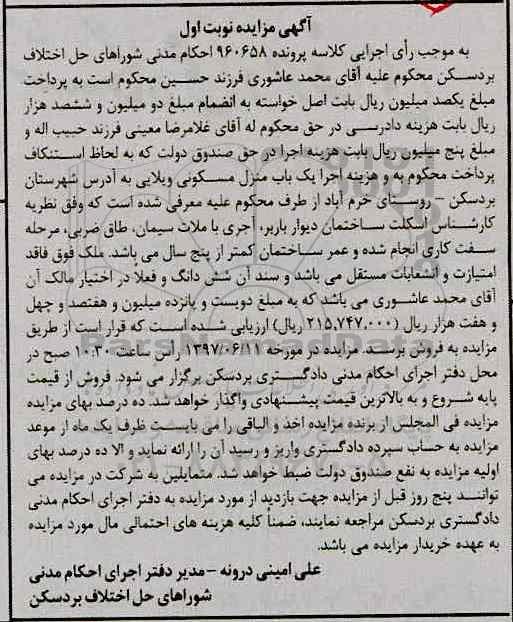 آگهی مزایده نوبت اول
به موجب رأی اجرایی کلاسه پرونده ۹۶۰۶۵۸ احکام مدنی شوراهای حل اختلاف
بردسکن محکوم علیه آقای محمد عاشوری فرزند حسین محکوم است به پرداخت
مبلغ یکصد میلیون ریال بابت اصل خواسته به انضمام مبلغ دو میلیون و ششصد هزار
ریال بابت هزینه دادرسی در حق محکوم له آقای غلامرضا معینی فرزند حبیب اله و
مبلغ پنج میلیون ریال بابت هزینه اجرا در حق صندوق دولت که به لحاظ استنکاف
پرداخت محکوم به و هزینه اجرا یک باب منزل مسکونی ویلایی به آدرس شهرستان
بردسکن – روستای خرم آباد از طرف محکوم علیه معرفی شده است که وفق نظریه
کارشناس اسکلت ساختمان دیوار باربر، آجری با ملات سیمان، طاق ضربی، مرحله
سفت کاری انجام شده و عمر ساختمان کمتر از پنج سال می باشد. ملک فوق فاقد
امتیازت و انشعابات مستقل می باشد و سند آن شش دانگ و فعلا در اختیار مالک آن
آقای محمد عاشوری می باشد که به مبلغ دویست و پانزده میلیون و هفتصد و چهل
و هفت هزار ریال (۲۱۵,۷۴۷,۰۰۰ ریال) ارزیابی شده است که قرار است از طریق
مزایده به فروش برسد. مزایده در مورخه ۱۳۹۷/۰۶/۱۱ راس ساعت ۱۰:۳۰ صبح در
محل دفتر اجرای احکام مدنی دادگستری بردسکن برگزار می شود. فروش از قیمت
پایه شروع و به بالاترین قیمت پیشنهادی واگذار خواهد شد. ده درصد بهای مزایده
مزایده فی المجلس از برنده مزایده اخذ و الباقی را می بایست ظرف یک ماه از موعد
مزایده به حساب سپرده دادگستری واریز و رسید آن را ارائه نماید و الا ده درصد بهای
اولیه مزایده به نفع صندوق دولت ضبط خواهد شد. متمایلین به شرکت در مزایده می
توانند پنج روز قبل از مزایده جهت بازدید از مورد مزایده به دفتر اجرای احکام مدنی
دادگستری بردسکن مراجعه نمایند، ضمناً کلیه هزینه های احتمالی مال مورد مزایده
به عهده خریدار مزایده می باشد.
علی امینی درونه – مدیر دفتر اجرای احکام مدنی
شوراهای حل اختلاف بردسکن
ParsNamadData